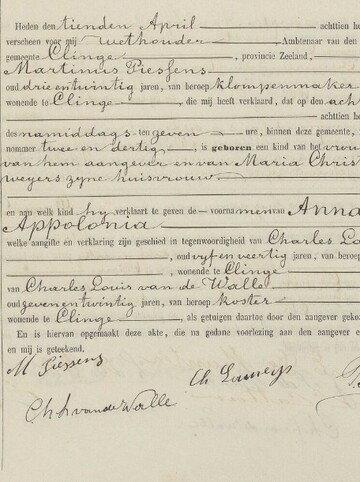 Heden den tienden April achttien h
verscheen voor mij Wethouder Ambtenaar van den
gemeente Clinge, provincie Zeeland,
Martinus Piessens
oud drieentwintig jaren, van beroep klompenmaker
wonende te Clinge, die mij heeft verklaard, dat op den ach
achttien he
des namiddags ten zeven ure, binnen deze gemeente,
nommer twee en dertig, is geboren een kind van het vrou
van hem aangever en van Maria Christ
weyers zyne huisvrouw
en aan welk kind hy verklaart te geven de voornamen van Anna
Appolonia
welke aangifte en verklaring zijn geschied in tegenwoordigheid van Charles Lo
oud vyf en veertig jaren, van beroep
, wonende te Clinge
van Charles Louis van de Walle
oud zeven en twintig jaren, van beroep koster
wonende te Clinge als getuigen daartoe door den aangever geko
En is hiervan opgemaakt deze akte, die na gedane voorlezing aan den aangever e
en mij is geteekend.
M Piessens
Ch Lameys
Ch L van de Walle